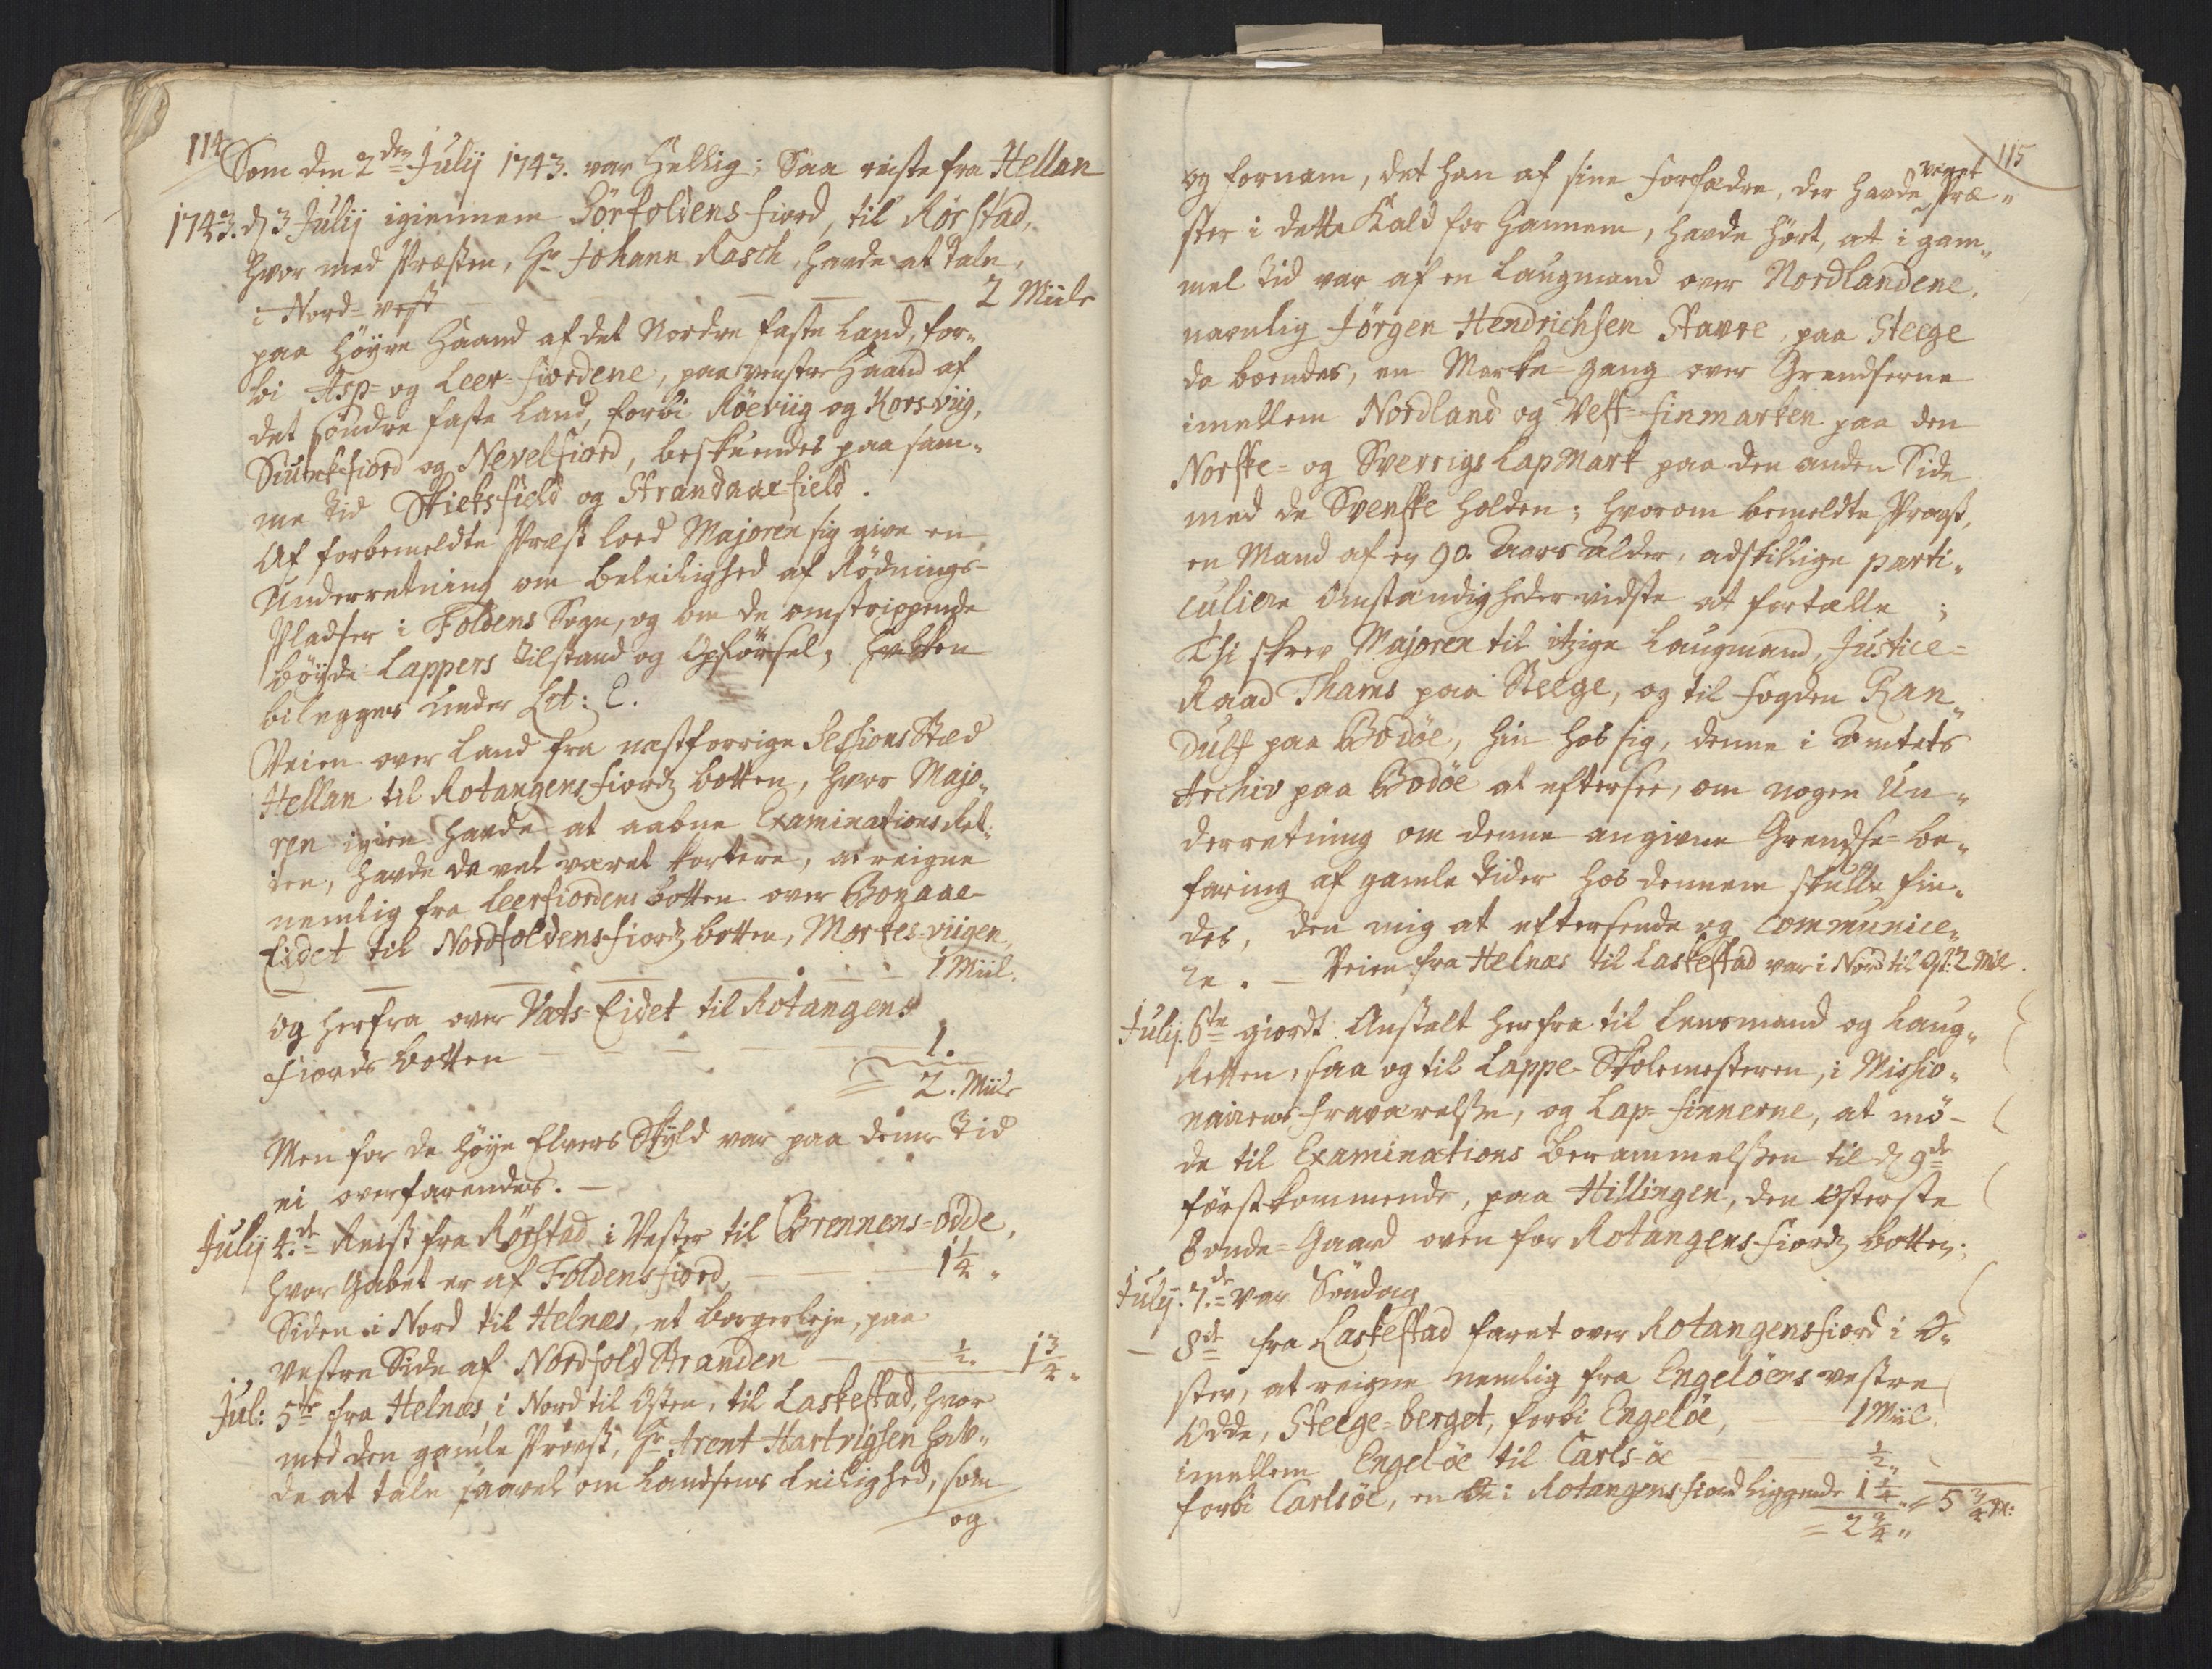 114
Som den 2den Julij 1743. var Hellig; Saa reiste fra Hellan
1743. d 3 Julij igiennem Sörfoldens fiord, til Rörstad,
hvor med Præsten, Hr Johann Rasch, havde at tale,
i Nord-vest — — — 2 Miile
paa höyre Haand af det Nordre faste Land, for-
bi Asp- og Leer-fiordene, paa venstre Haand af
det söndre faste Land, forbi Röeviig og Korsviig,
Siunkfiord og Nevelsfiord, beskuendes paa sam-
me Tid Skieksfield og Strandaae-field.
Af forbemeldte Præst loed Majoren sig give en
Underretning om beleilighed af Rödnings-
Pladser i Foldens Sogn, og om de omstrippende
böyde-Lappers tilstand og Opförsel; hvilken
bilegges under Lit: E.
Veien over Land fra næstforrige Sessions Stæd
Hellan til Rotangens fiords botten, hvor Majo-
ren igien havde at aabne Examinations Ret-
ten, havde da vel været kortere, at reigne
nemlig fra Leerfiordens botten over Bonaae-
Eidet til Nordfoldens-fiords botten, Morkes-viigen,
— — — — 1 Miil.
og herfra over Vats-Eidet til Rotangens
fiords botten — — — 1.
= 2. Miile
Men for de höye Elvers Skyld var paa denne Tid
ei overfarendes. —
Julij 4.de Reist fra Rörstad i Vester til Brennens-odde,
hvor Gabet er af Foldens fiord, — — 1 1/4 "
Siden i Nord til Helnæs, et borgerleje, paa
vestre Side af Nordfold Stranden — — 1/2. 1 3/4 "
Jul: 5te fra Helnæs i Nord til Osten, til Laskestad, hvor
med den gamle Provst, Hr Arent Hartvigsen hav-
de at tale saavel om Landsens Leilighed, som
og
115
og fornam, det han af sine forfædre, der havde været Præ-
ster i dette Kald for hannem, havde hört, at i gam-
mel tid var af en Laugmand over Nordlandene,
navnlig Jörgen Hendrichsen Stavre, paa Steege
da boendes, en Marke-gang over Grendserne
imellem Nordland og Vest-finmarken paa den
Norske- og Sverrigs LapMark paa den anden Side
med de Svenske holden; hvorom bemeldte Provst,
en Mand af ey 90. Aars alder, adskillige parti-
culiere Omstændigheder vidste at fortælle;
Thi skrev Majoren til itzige Laugmand, Justice-
Raad Thams paa Steege, og til fogden Ran-
dulf paa Bodöe, hin hos sig, denne i Amtets
Archiv paa Bodöe at eftersee, om nogen Un-
derretning om denne angivne Grendse-be-
faring af gamle Tider hos dennem skulle fin-
des, den mig at eftersende og communice-
re. — Veien fra Helnæs til Laskestad var i Nord til Ost: 2 Mile.
Julij. 6te giordt Anstalt herfra til Lensmand og Laug-
Retten, saa og til Lappe-Skolemesteren, i Missio-
nairens fraværelse, og Lap-finnerne, at mö-
de til Examinations berammelsen til d 9de
förstkommende, paa Hillingen, den Osterste
Bonde-Gaard oven for Rotangens-fiords botten;
Julij. 7.de var Söndag
— 8de fra Laskestad faret over Rotangensfiord i O-
ster, at reigne nemlig fra Engelöens vestre
Odde, Steege-berget, forbi Engelöe, 1 Miil.
imellem Engel-öe til Carls-öe 1/2 "
forbi Carlsöe, en Öe i Rotangens fiord liggende 1 1/4 " = 5 3/4 M:
= 2 3/4 "